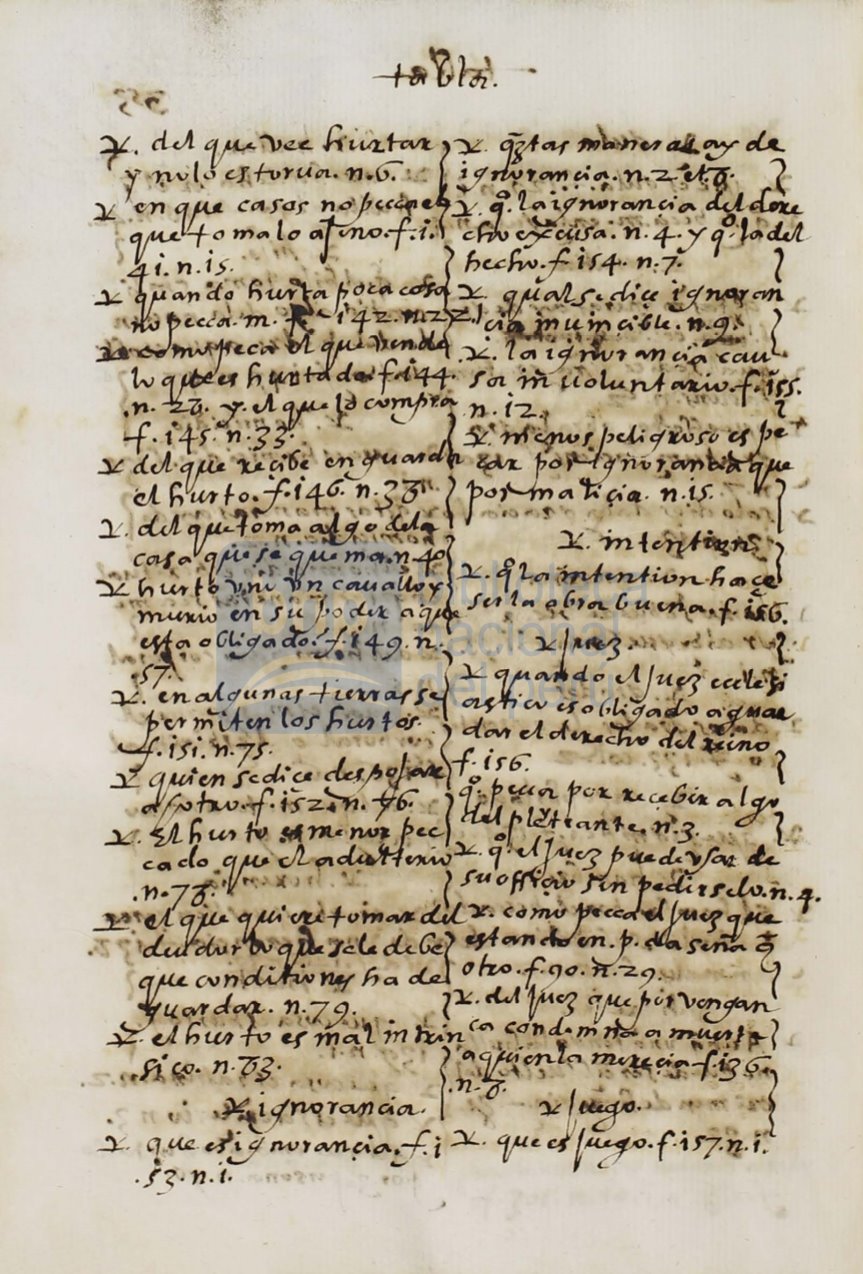 tabla.
℣. del que vee hurtar
y no lo estorua. n. 6.
℣ en que casos no pecca el
que toma lo ageno. f. i.
4i. n. i5.
℣ quando hurta poca cosa
no pecca. m. f. i42. n. 22.
℣ como peca el que vende
lo que es hurtado. f. i44.
n. 28. y. el que lo compra
f. i45. n. 33.
℣ del que recibe en guarda
el hurto. f. i46. n. 38.
℣. del que toma algo dela
casa que se quema. n. 40
℣ hurto vno vn cauallo y
murio en su poder a que
esta obligado. f. i49. n.
57.
℣. en algunas tierras se
permiten los hurtos.
f. i5i. n. 75.
℣ quien se dice despojar
a otro. f. i52. n. 76.
℣. El hurto es menor pec
cado que el adulterio
.n. 78.
℣. el que quiere tomar del
deudor lo que se le debe
que conditiones ha de
guardar. n. 79.
℣. el hurto es mal intrin
sico. n. 83.
℣ ignorancia.
℣. que es ignorancia. f. i
.53. n. i.
℣. q̃tas maneras ay de
ignorancia. n. 2. et 8.
℣. qº. la ignorancia del dere
cho excusa. n. 4. y qº. la del
hecho. f. i54. n. 7.
℣. qual se dice ignoran
cia inuincible. n. 9.
℣. la ignorancia cau
sa inuoluntario. f. i55.
n. i2.
℣ menos peligroso es pe
car por ignorancia que
por malicia. n. i5.
℣. intention
℣. qº la intention haçe
ser la obra buena. f. i56.
℣ Juez.
℣ quando el Juez ecclesi
astico es obligado a guar
dar el derecho del reino
f. i56.
qº. pecca por recebir algo
del pleiteante. n. 3.
℣. qº. el Juez puede vsar de
su officio sin pedirselo. n. 4.
℣. como pecca el Juez que
estando en. p. da seña q̃
otro. f. 90. n. 29.
℣. del Juez que por vengan
ca condemna a muerte
a quien la merecia f. i36.
.n. 8.
℣ Juego.
℣. que es Juego. f. i57. n. i.